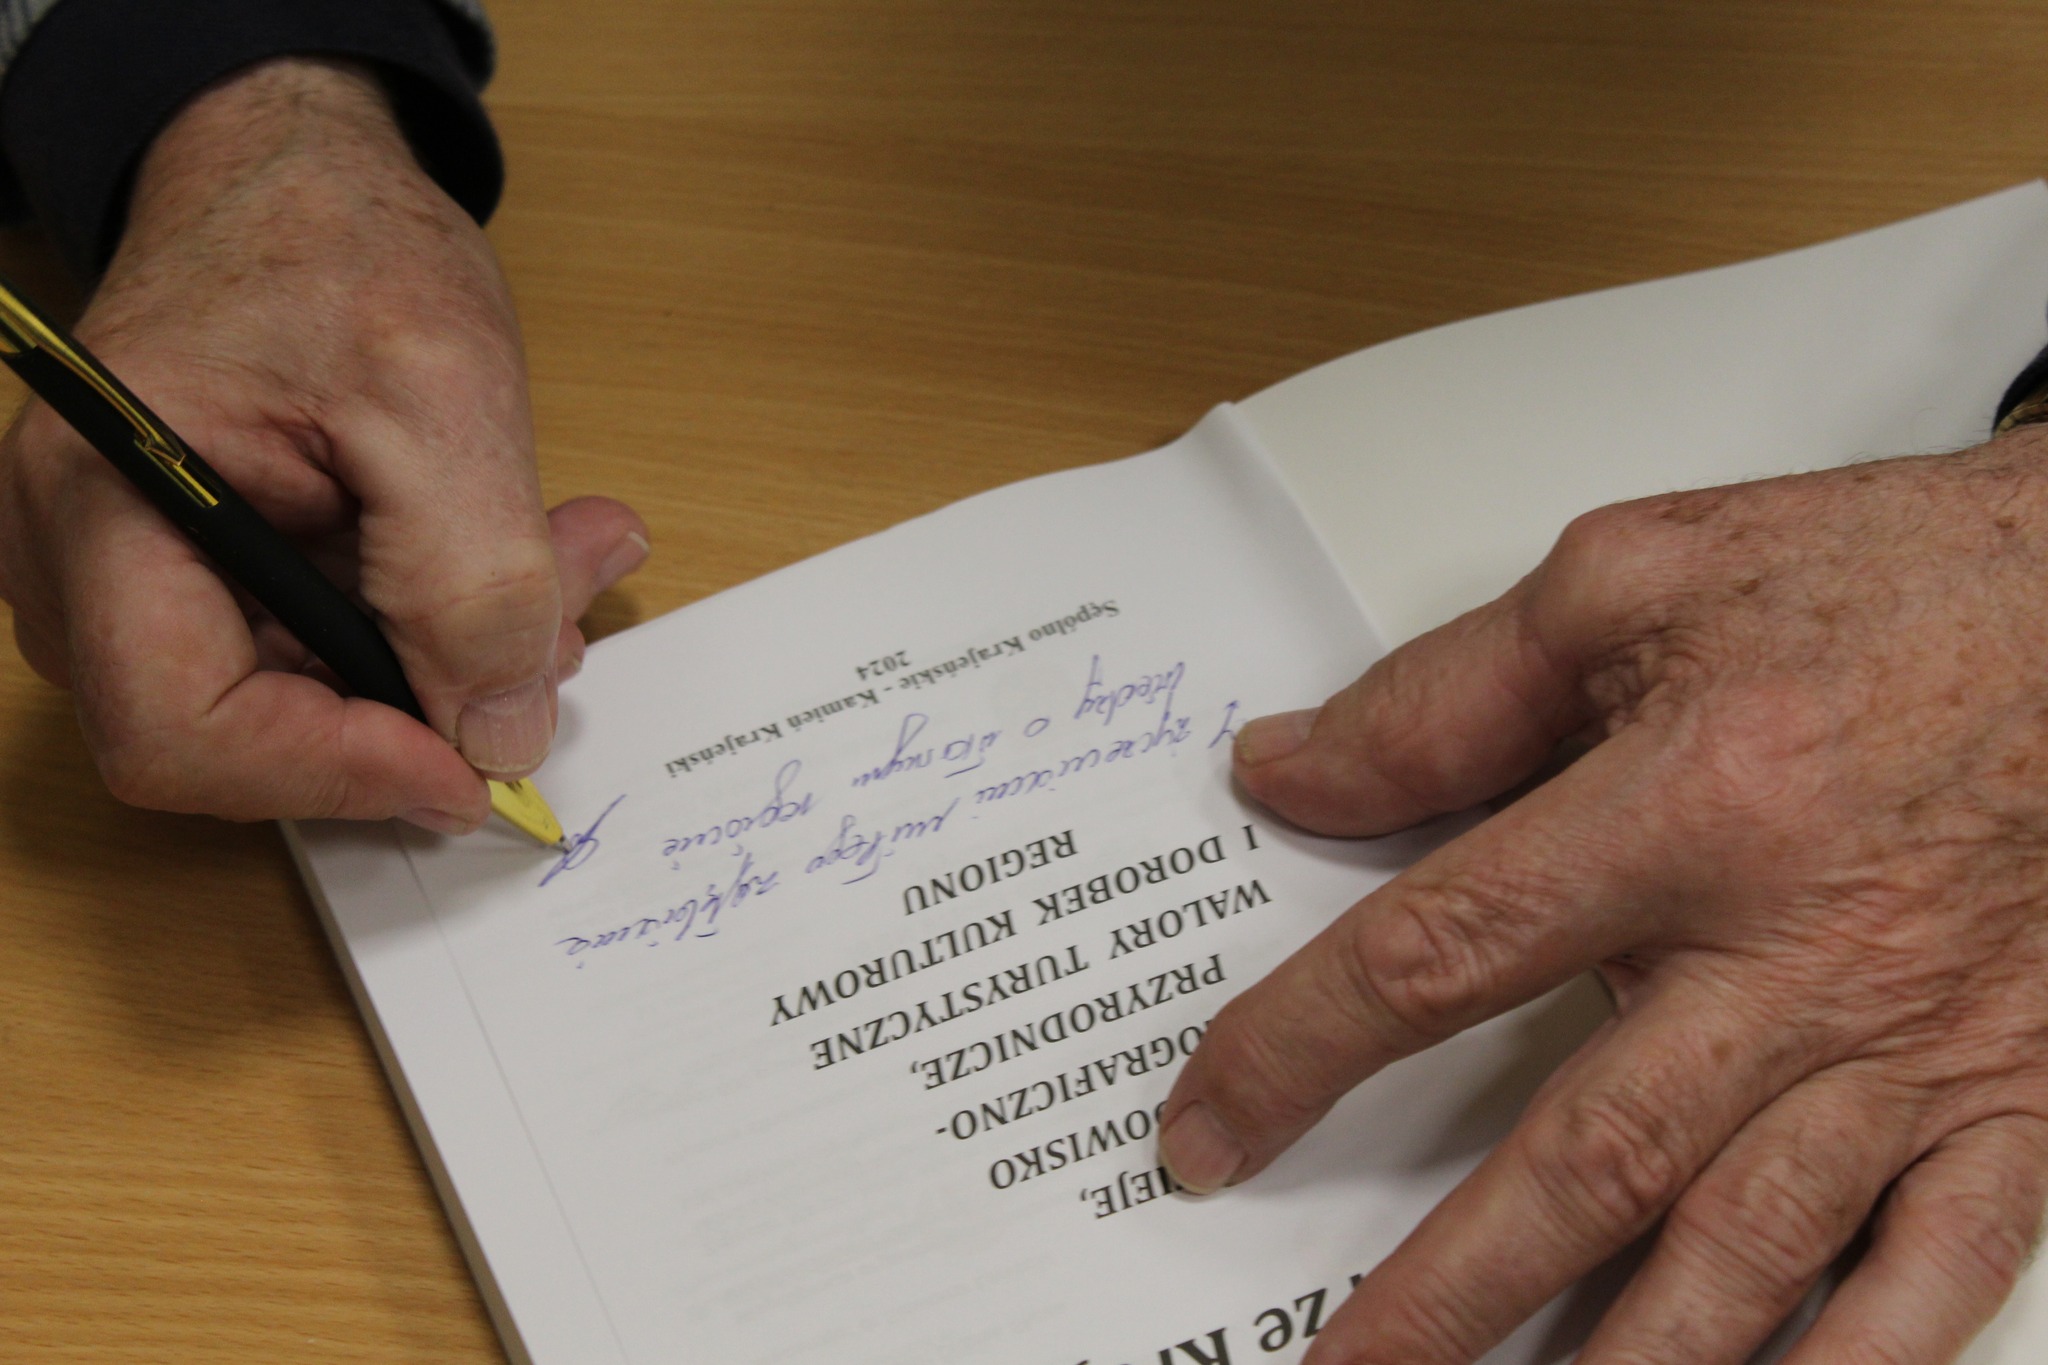 ze Kr
IEJE,
OWISKO
OGRAFICZNO-
PRZYRODNICZE,
WALORY TURYSTYCZNE
I DOROBEK KULTUROWY
REGIONU
Z życzeniami miłego zgłębiania
wiedzy o naszym regionie
Sępólno Krajeńskie - Kamień Krajeński
2024